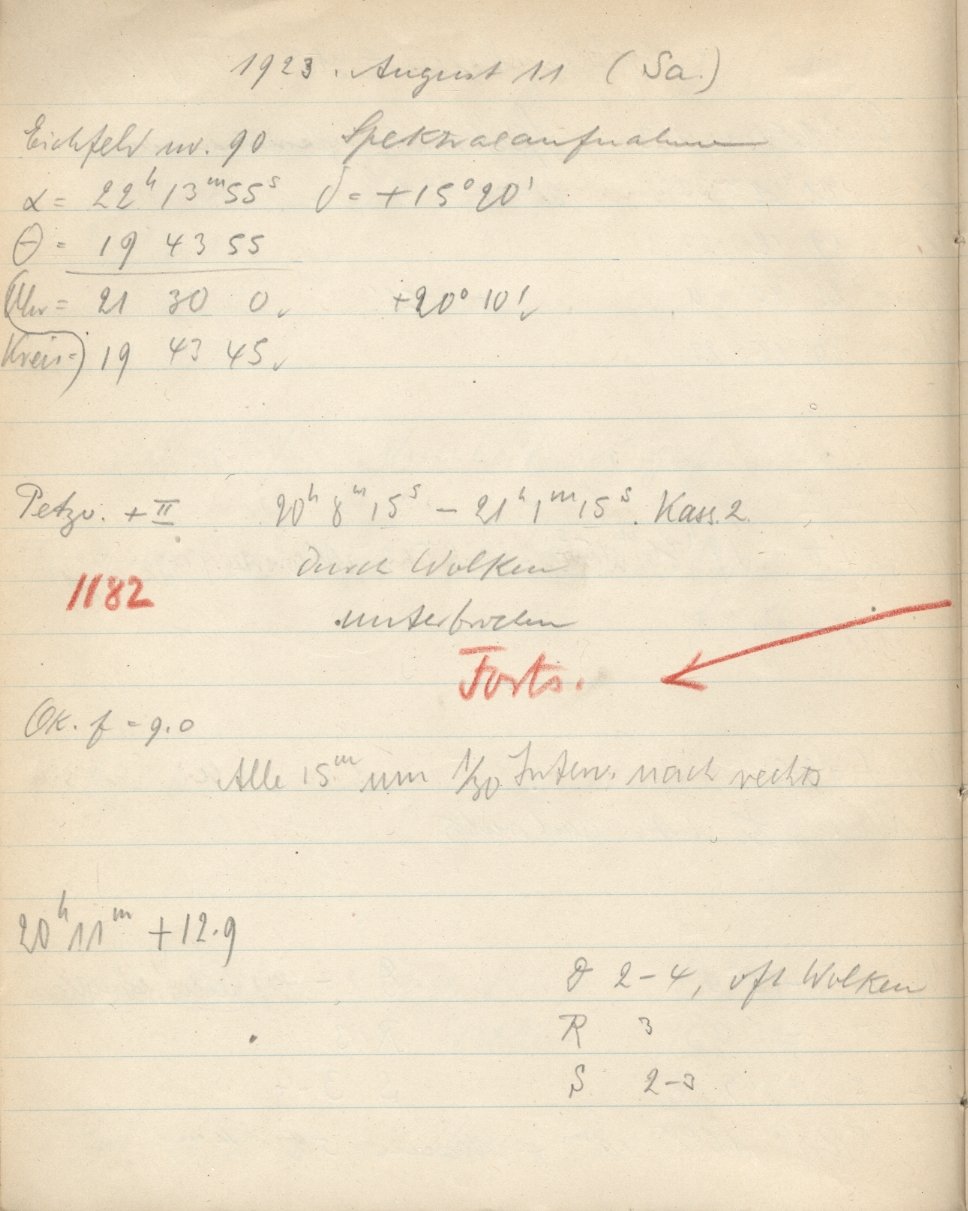 1923. August 11 (Sa.)
Eichfeld nr. 90 Spektralaufnahme
α = 22ʰ 13ᵐ 55ˢ δ = +15° 20'
Θ = 19 43 55
Uhr = 21 30 0 +20° 10'
Kreis = 19 43 45
Petzv. + II 20ʰ 8ᵐ 15ˢ – 21ʰ 1ᵐ 15ˢ. Kass. 2.
durch Wolken
1182
unterbrochen
Forts.
Ok. f = 9.0
Alle 15ᵐ um 1/30 Interv. nach rechts
20ʰ 11ᵐ +12.9
2–4, oft Wolken
R 3
S 2–3